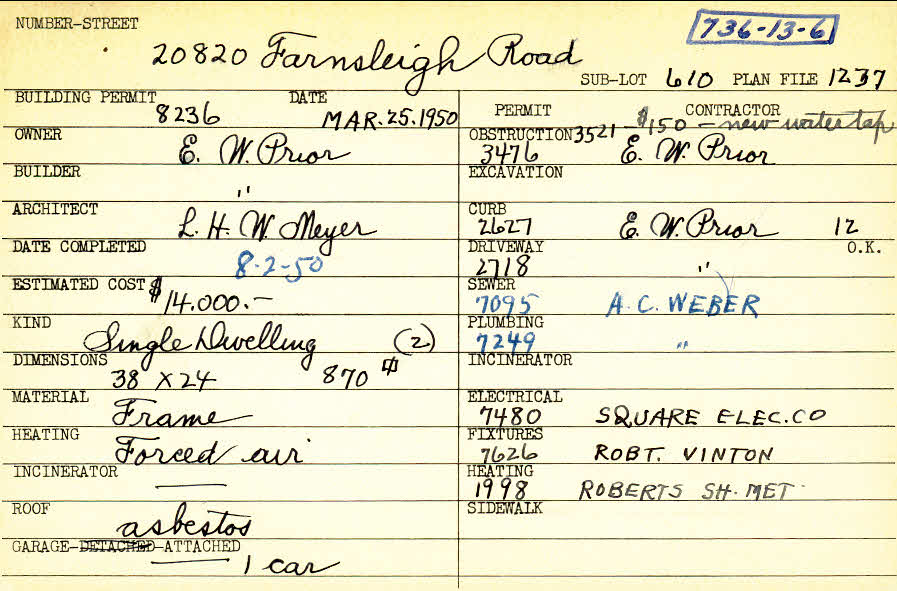 NUMBER-STREET
736-13-6
20820 Farnsleigh Road
SUB-LOT 610 PLAN FILE 1237
BUILDING PERMIT 8236 DATE MAR. 25. 1950
OWNER E. W. Prior
BUILDER "
ARCHITECT L. H. W. Meyer
DATE COMPLETED 8-2-50
ESTIMATED COST $14.000.-
KIND Single Dwelling (2)
DIMENSIONS 38 X 24 870
MATERIAL Frame
HEATING Forced air
INCINERATOR —
ROOF asbestos
GARAGE-DETACHED-ATTACHED 1 car
PERMIT CONTRACTOR
3521 - $150 - new water tap
OBSTRUCTION 3476 E. W. Prior
EXCAVATION
CURB 2627 E. W. Prior 12
DRIVEWAY 2718 " O.K.
SEWER 7095 A. C. WEBER
PLUMBING 7249 "
INCINERATOR
ELECTRICAL 7480 SQUARE ELEC. CO
FIXTURES 7626 ROBT. VINTON
HEATING 1998 ROBERTS SH. MET.
SIDEWALK